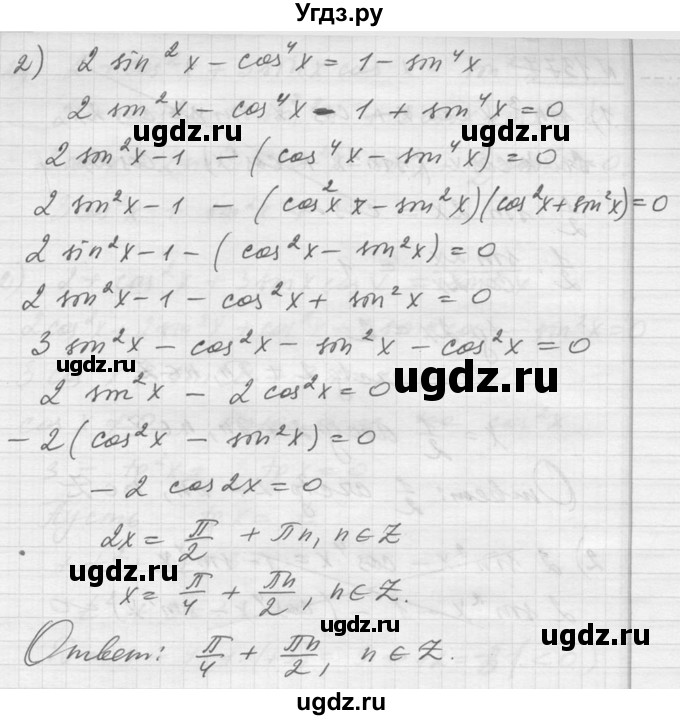 Угдз.ру
2) 2 sin²x − cos⁴x = 1 − sin⁴x
2 sin²x − cos⁴x − 1 + sin⁴x = 0
ugdz.ru ugdz.ru
2 sin²x − 1 − (cos⁴x − sin⁴x) = 0
2 sin²x − 1 − (cos²x − sin²x)(cos²x + sin²x) = 0
2 sin²x − 1 − (cos²x − sin²x) = 0
ugdz.ru ugdz.ru
2 sin²x − 1 − cos²x + sin²x = 0
3 sin²x − cos²x − sin²x − cos²x = 0
ugdz.ru ugdz.ru
2 sin²x − 2 cos²x = 0
− 2 (cos²x − sin²x) = 0
− 2 cos2x = 0
ugdz.ru ugdz.ru
2x = π/2 + πn, n ∈ Z
ugdz.ru
x = π/4 + πn/2, n ∈ Z.
ugdz.ru
Ответ: π/4 + πn/2, n ∈ Z.
ugdz.ru
ugdz.ru